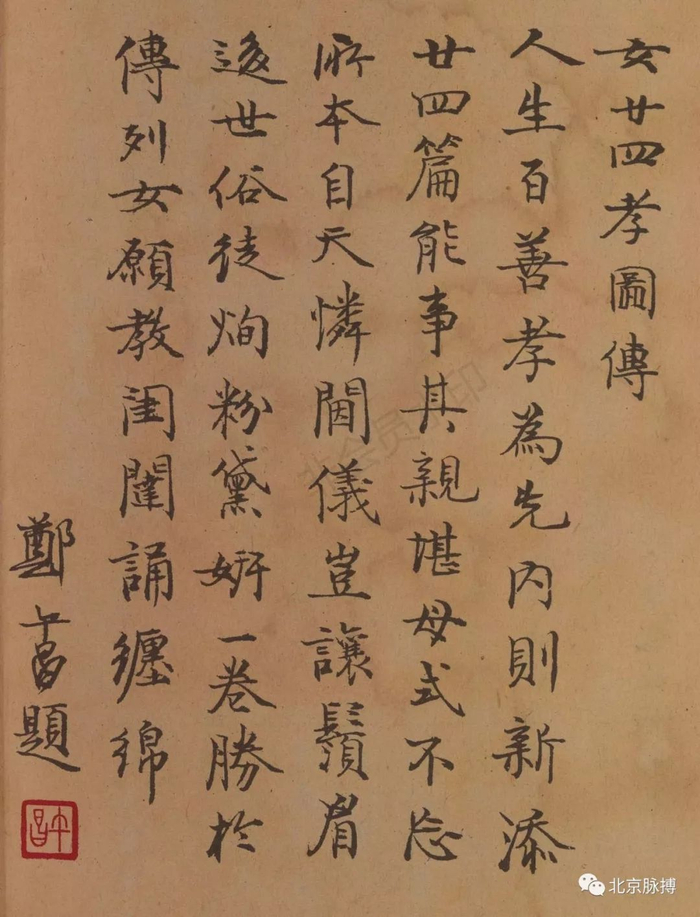 女廿四孝圖傳
人生百善孝為先內則新添
廿四篇能事其親堪母式不忘
所本自天憐閫儀豈讓鬚眉
後世俗徒炯粉黛妍一卷勝於
傳列女願教閨闥誦纏綿
鄭午昌題
午昌
北京脉搏